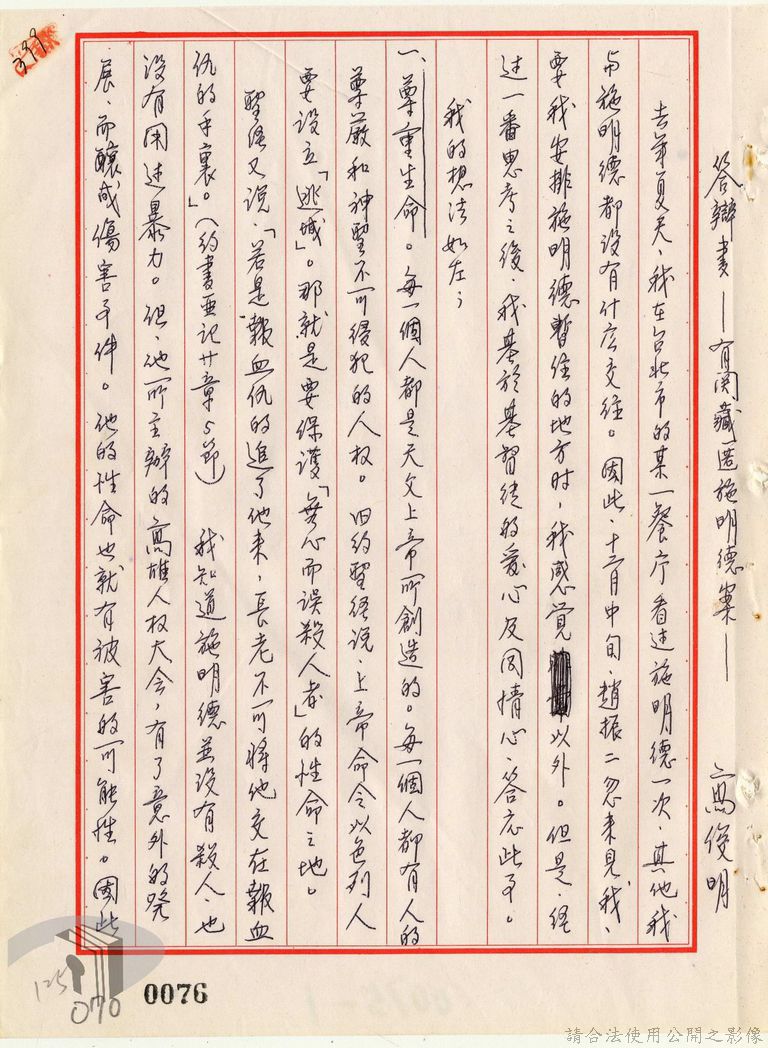 答辯書——有関藏匿施明德案——　高俊明
去年夏天、我在台北市的某一餐庁看过施明德一次、其他我
与施明德都没有什広交往。因此、十二月中旬、趙振二忽来見我、
要我安排施明德暫住的地方时，我感覚以外。但是、経
过一番思考之後、我基於基督徒的愛心及同情心、答応此事。
我的想法如左；
一、尊重生命。每一個人都是天父上帝所創造的。每一個人都有人的
尊嚴和神聖不可侵犯的人权。旧約聖経説、上帝命令以色列人
要設立「逃城」。那就是要保護「無心而误殺人者」的性命之地。
聖経又说、「若是報血仇的追了他来，長老不可將他交在報血
仇的手裏。」（約書亜記廿章5節）　我知道施明德並没有殺人、也
没有用过暴力。但、他所主辦的高雄人权大会，有了意外的発
展、而釀成傷害事件。他的性命也就有被害的可能性。因此
399
125
070
0076
請合法使用公開之影像